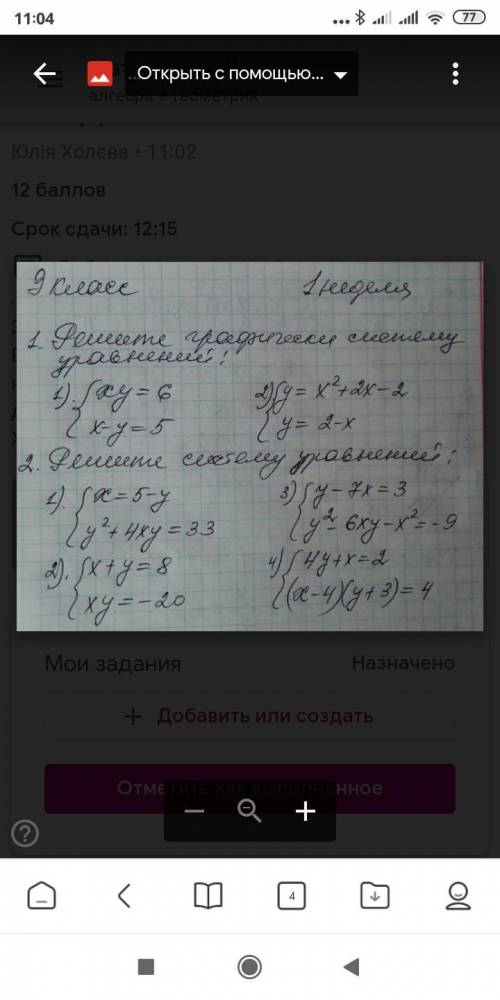 11:04
77
Открыть с помощью...
алгебра + геометрия
Юлія Холєва • 11:02
12 баллов
Срок сдачи: 12:15
9 класс 1 неделя
1. Решите графически систему
уравнений:
1). { xy = 6
x-y = 5
2) { y = x²+2x-2
y = 2-x
2. Решите систему уравнений:
1). { x = 5-y
y²+4xy = 33
3) { y-7x = 3
y²-6xy-x² = -9
2). { x+y = 8
xy = -20
4) { 4y+x = 2
(x-4)(y+3) = 4
Мои задания Назначено
+ Добавить или создать
Отметить как выполненное
?
4